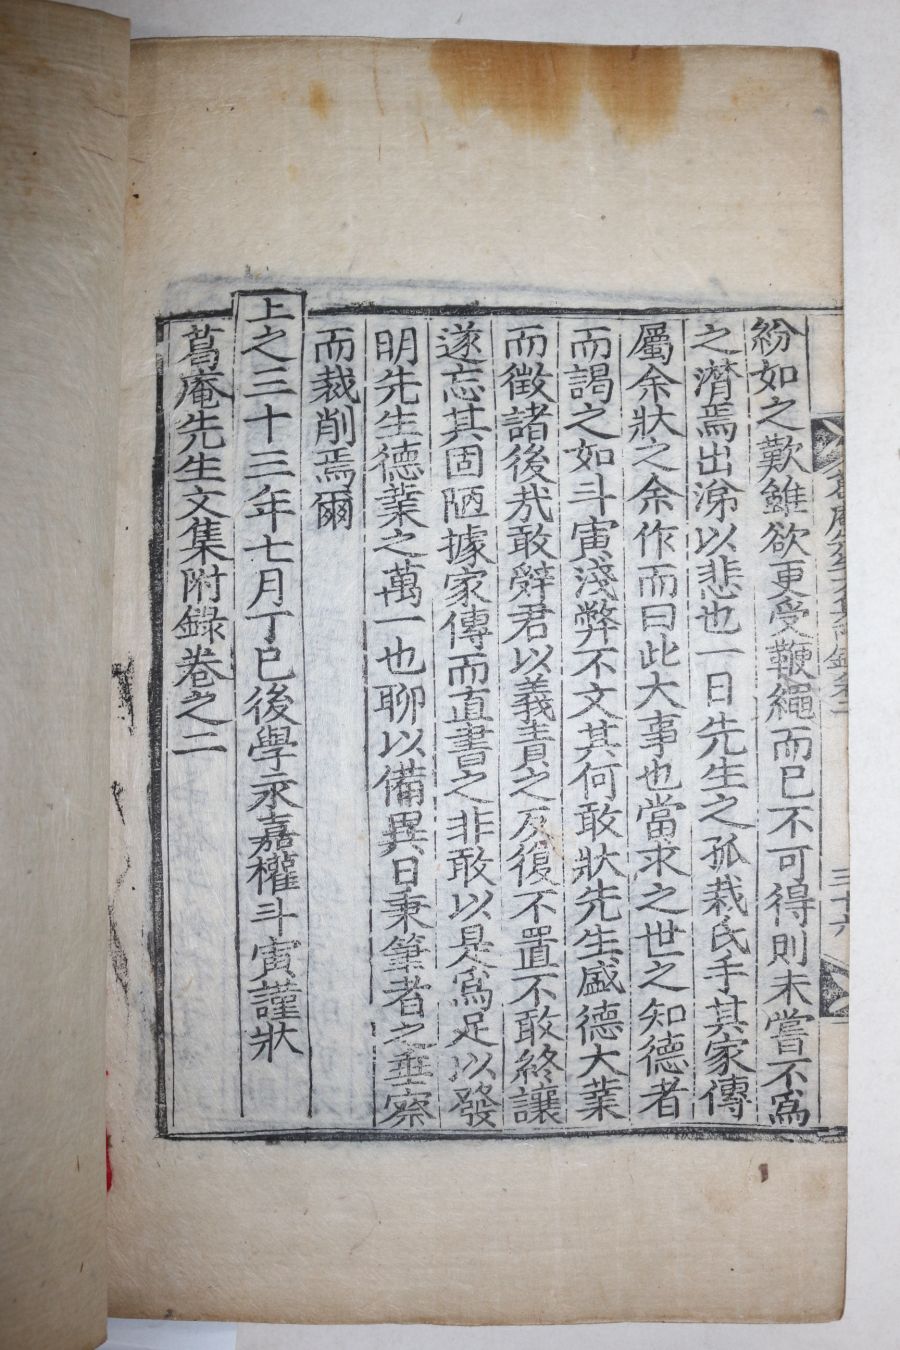 紛如之歎雖欲更受鞭繩而已不可得則未嘗不爲
之潸焉出涕以悲也一日先生之孤栽氏手其家傳
屬余狀之余作而曰此大事也當求之世之知德者
而謁之如斗寅淺弊不文其何敢狀先生盛德大業
而徵諸後㢤敢辭君以義責之反復不置不敢終讓
遂忘其固陋據家傳而直書之非敢以是爲足以發
明先生德業之萬一也聊以備異日秉筆者之垂察
而裁削焉爾
上之三十三年七月丁巳後學永嘉權斗寅謹狀
葛庵先生文集附録卷之二
三十六